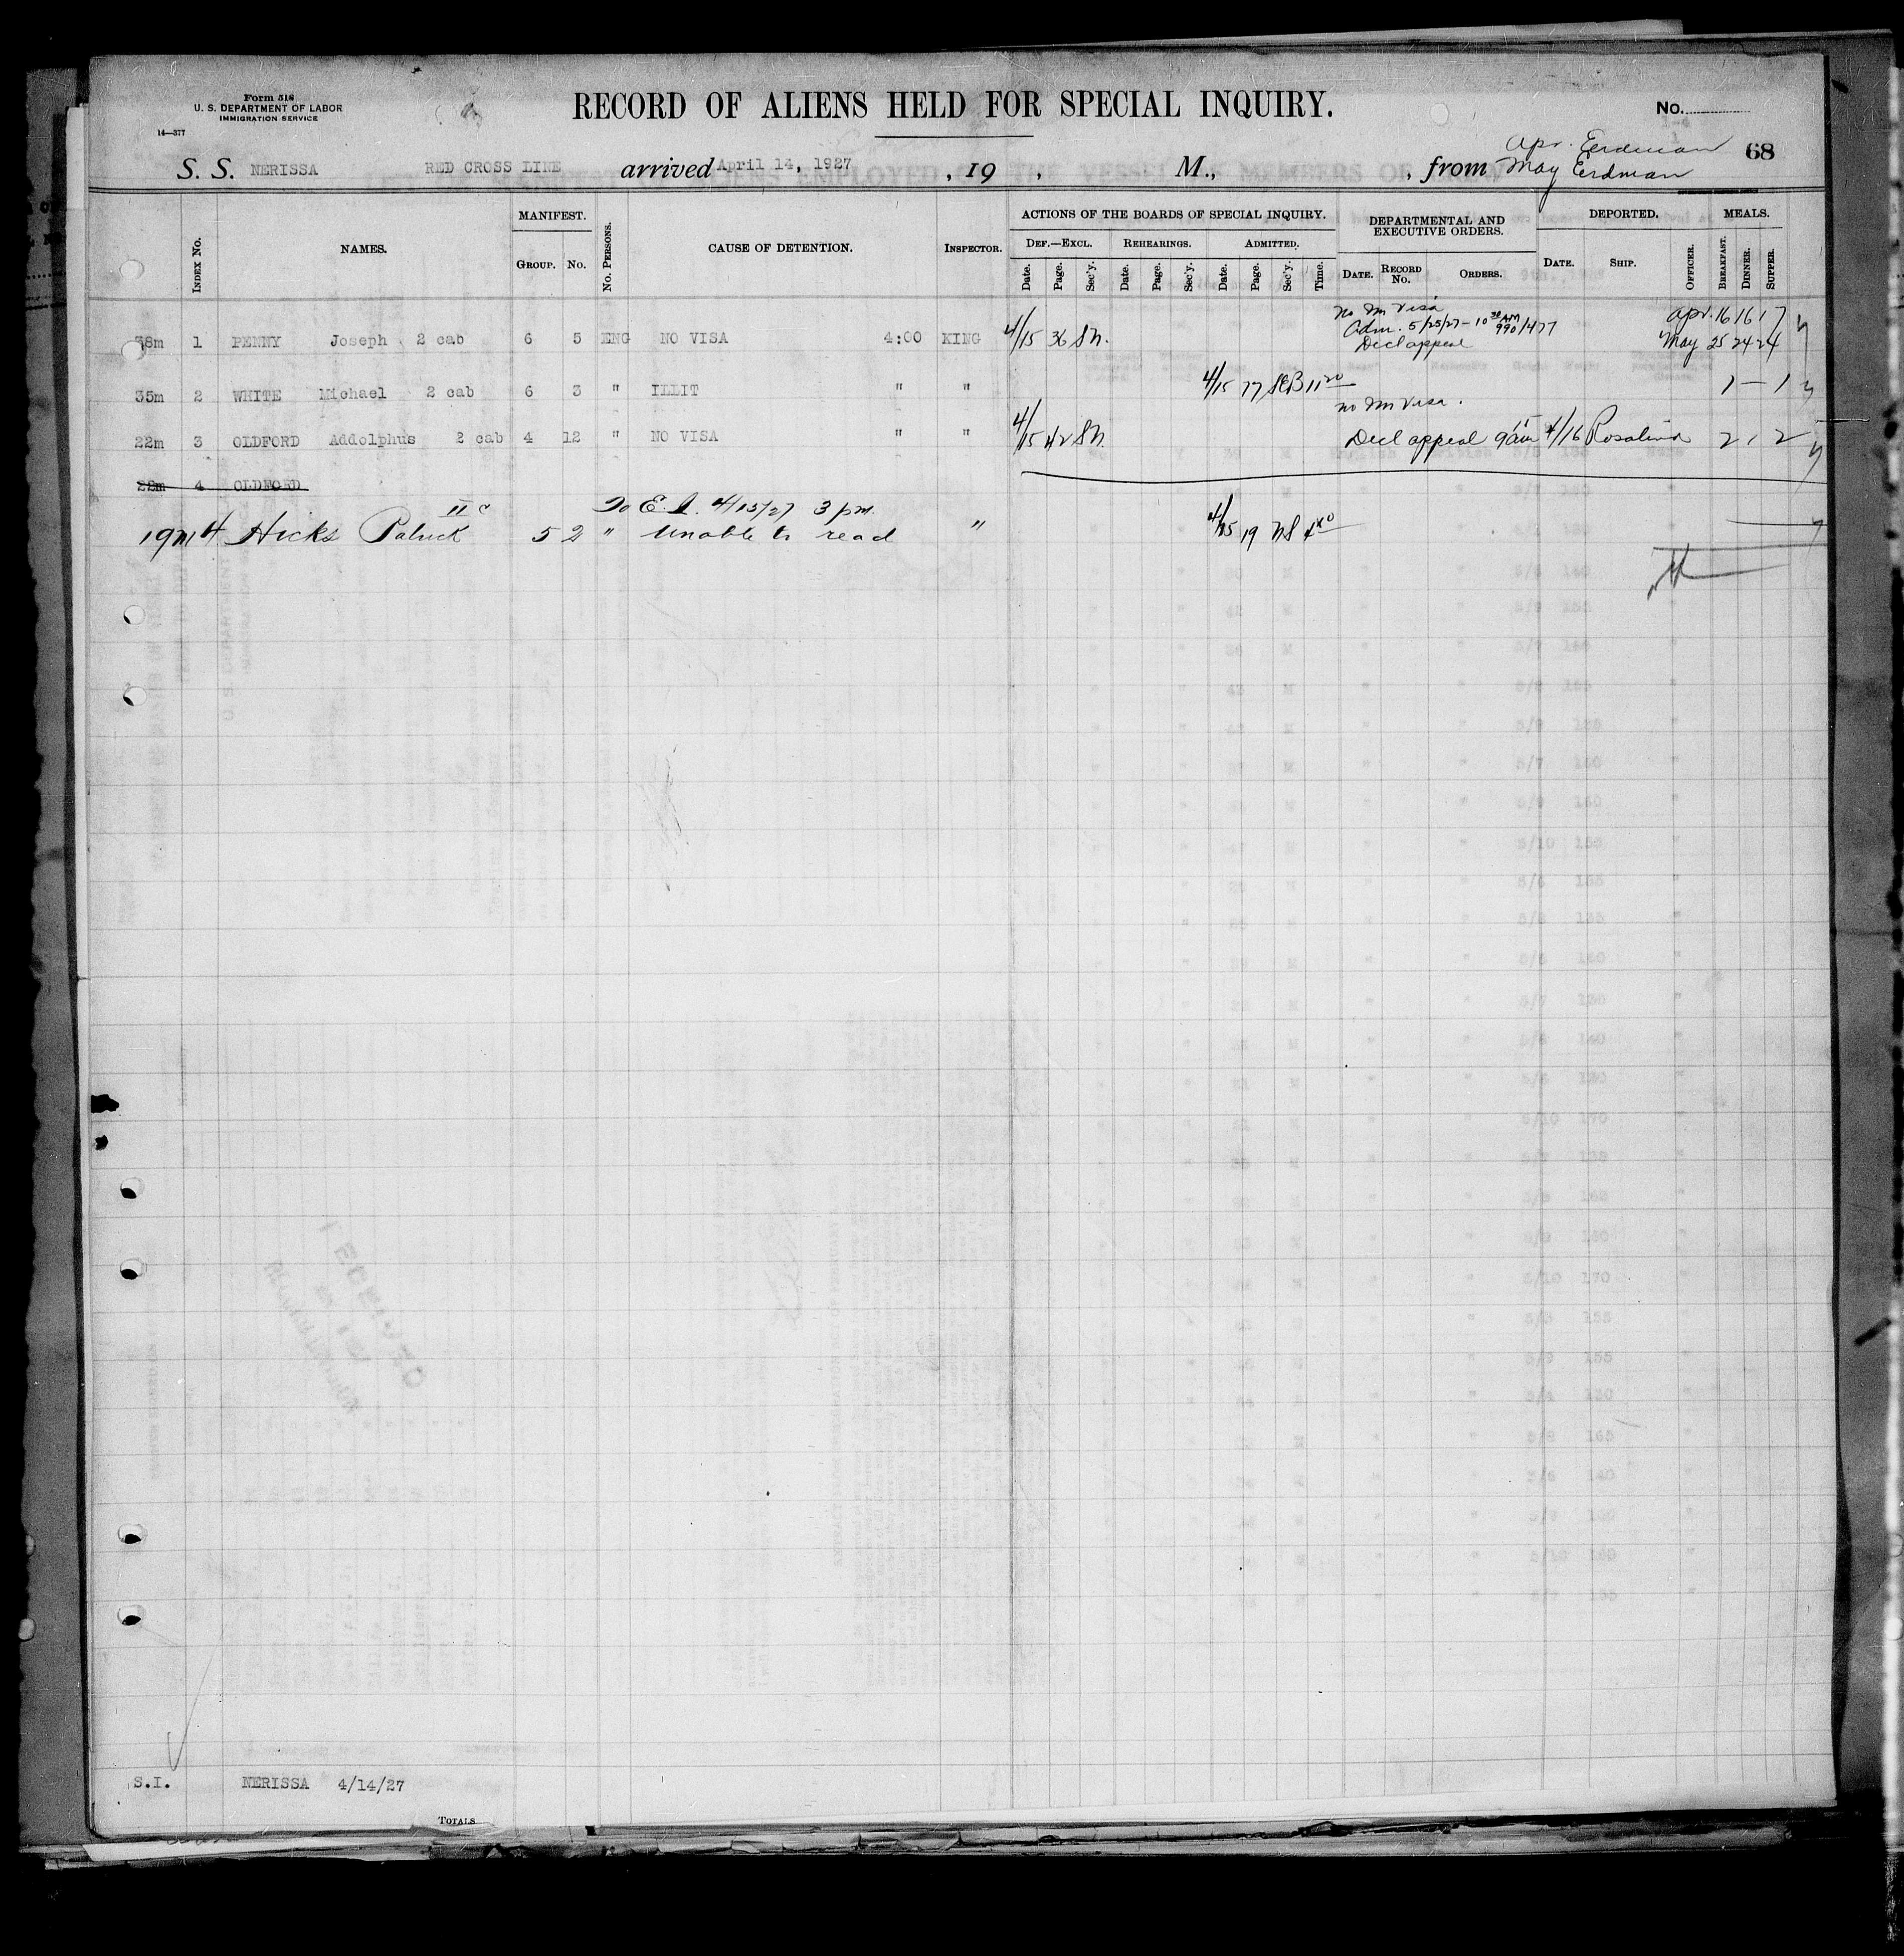 Form 518
U. S. DEPARTMENT OF LABOR
IMMIGRATION SERVICE
14—377
RECORD OF ALIENS HELD FOR SPECIAL INQUIRY.
No.
68
Apr. Erdman
S. S. NERISSA RED CROSS LINE arrived April 14, 1927, 19 , M., , from May Erdman
INDEX No. NAMES. MANIFEST. GROUP. No. No. PERSONS. CAUSE OF DETENTION. INSPECTOR. ACTIONS OF THE BOARDS OF SPECIAL INQUIRY. DEF.—EXCL. Date. Page. Sec'y. REHEARINGS. Date. Page. Sec'y. ADMITTED. Date. Page. Sec'y. Time. DEPARTMENTAL AND EXECUTIVE ORDERS. DATE. RECORD No. ORDERS. DEPORTED. DATE. SHIP. OFFICER. MEALS. BREAKFAST. DINNER. SUPPER.
no Im Visa
Adm. 5/25/27 - 10 30 AM 990/477 Apr. 16 16 17
38m 1 PENNY Joseph 2 cab 6 5 ENG NO VISA 4:00 KING 4/15 36 Decl appeal May 25 24 24
35m 2 WHITE Michael 2 cab 6 3 " ILLIT " " 4/15 77 11 20 1 — 1
no Im Visa.
22m 3 OLDFORD Addolphus 2 cab 4 12 " NO VISA " " 4/15 42 Decl appeal 9 am 4/16 Rosalind 2 1 2
22m 4 OLDFORD
To E. I. 4/15/27 3 pm.
19m 4 Hicks Patrick II c 5 2 " Unable to read " 4/15 19
S.I. NERISSA 4/14/27
TOTALS